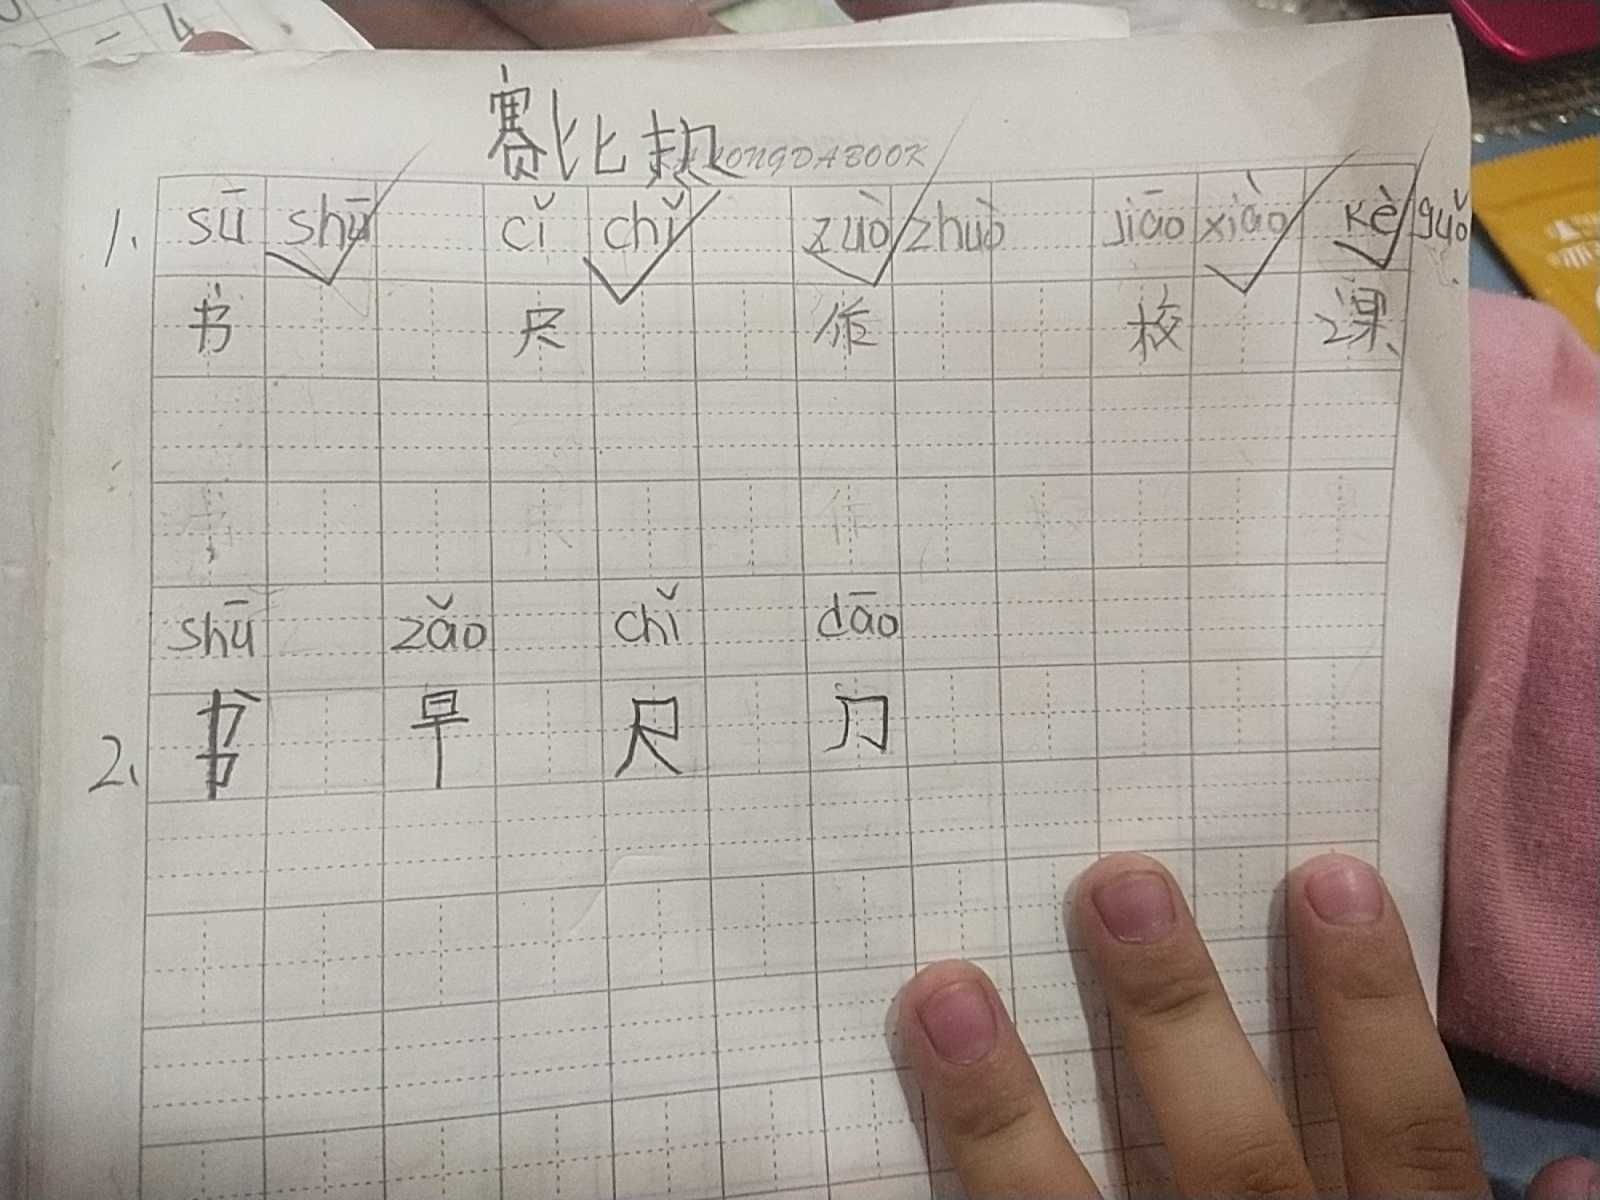 4
赛比热
KONGDABOOK
1、 sū shū cǐ chǐ zuò zhuò jiāo xiào kè guǒ
书 尺 作 校 课
书 尺 作 校 果
shū zǎo chǐ dāo
2、 书 早 尺 刀